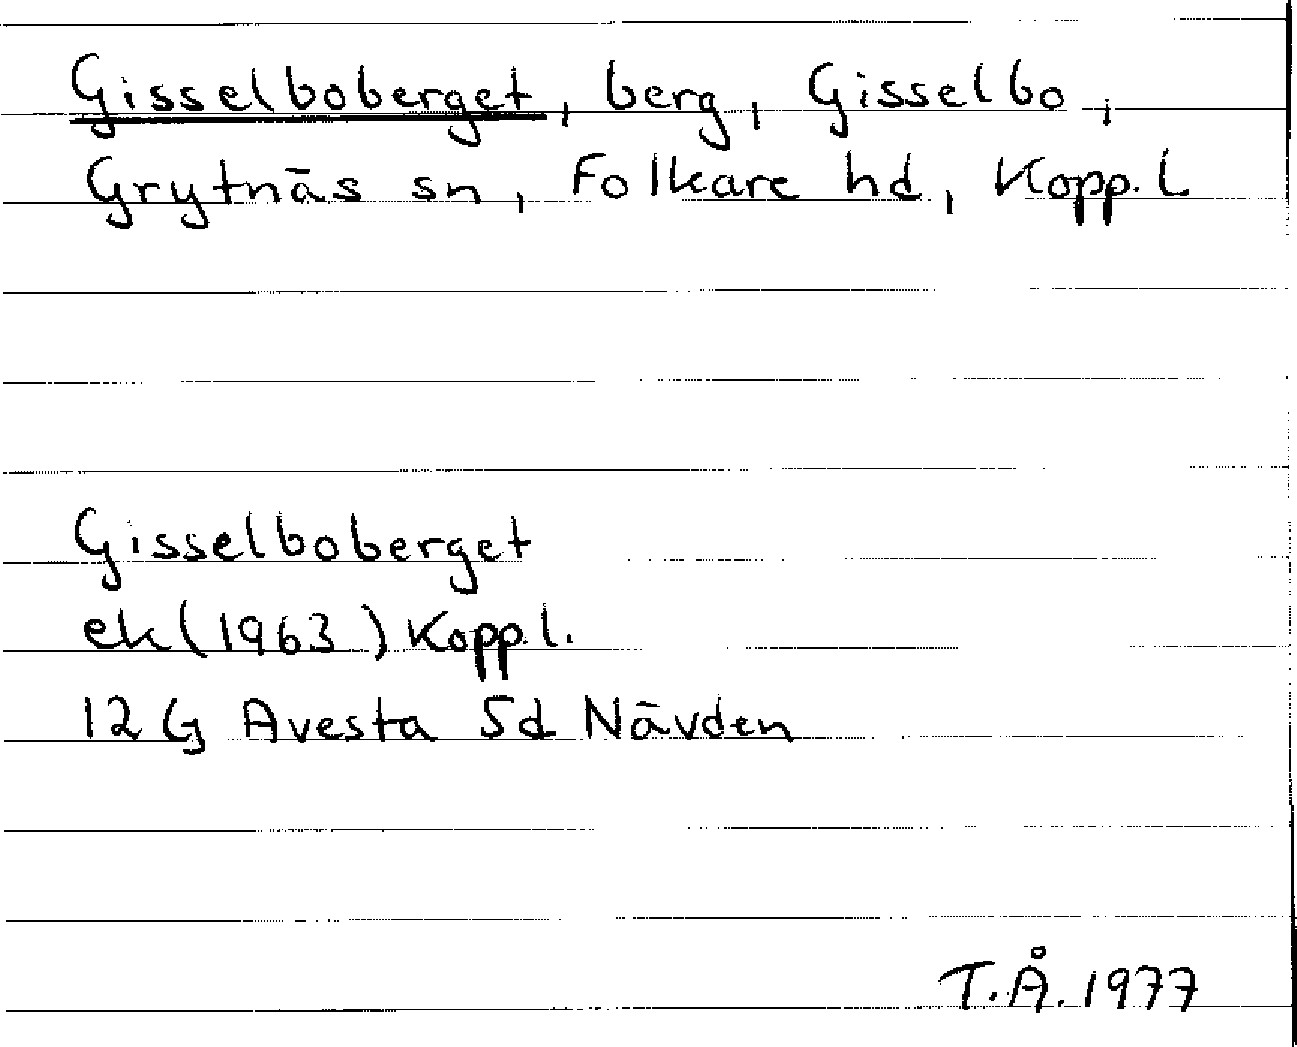 Gisselboberget, berg, Gisselbo,
Grytnäs sn, Folkare hd, Kopp. l
Gisselboberget
ek (1963) Kopp.l.
12 G Avesta 5d Nävden
T.Å. 1977